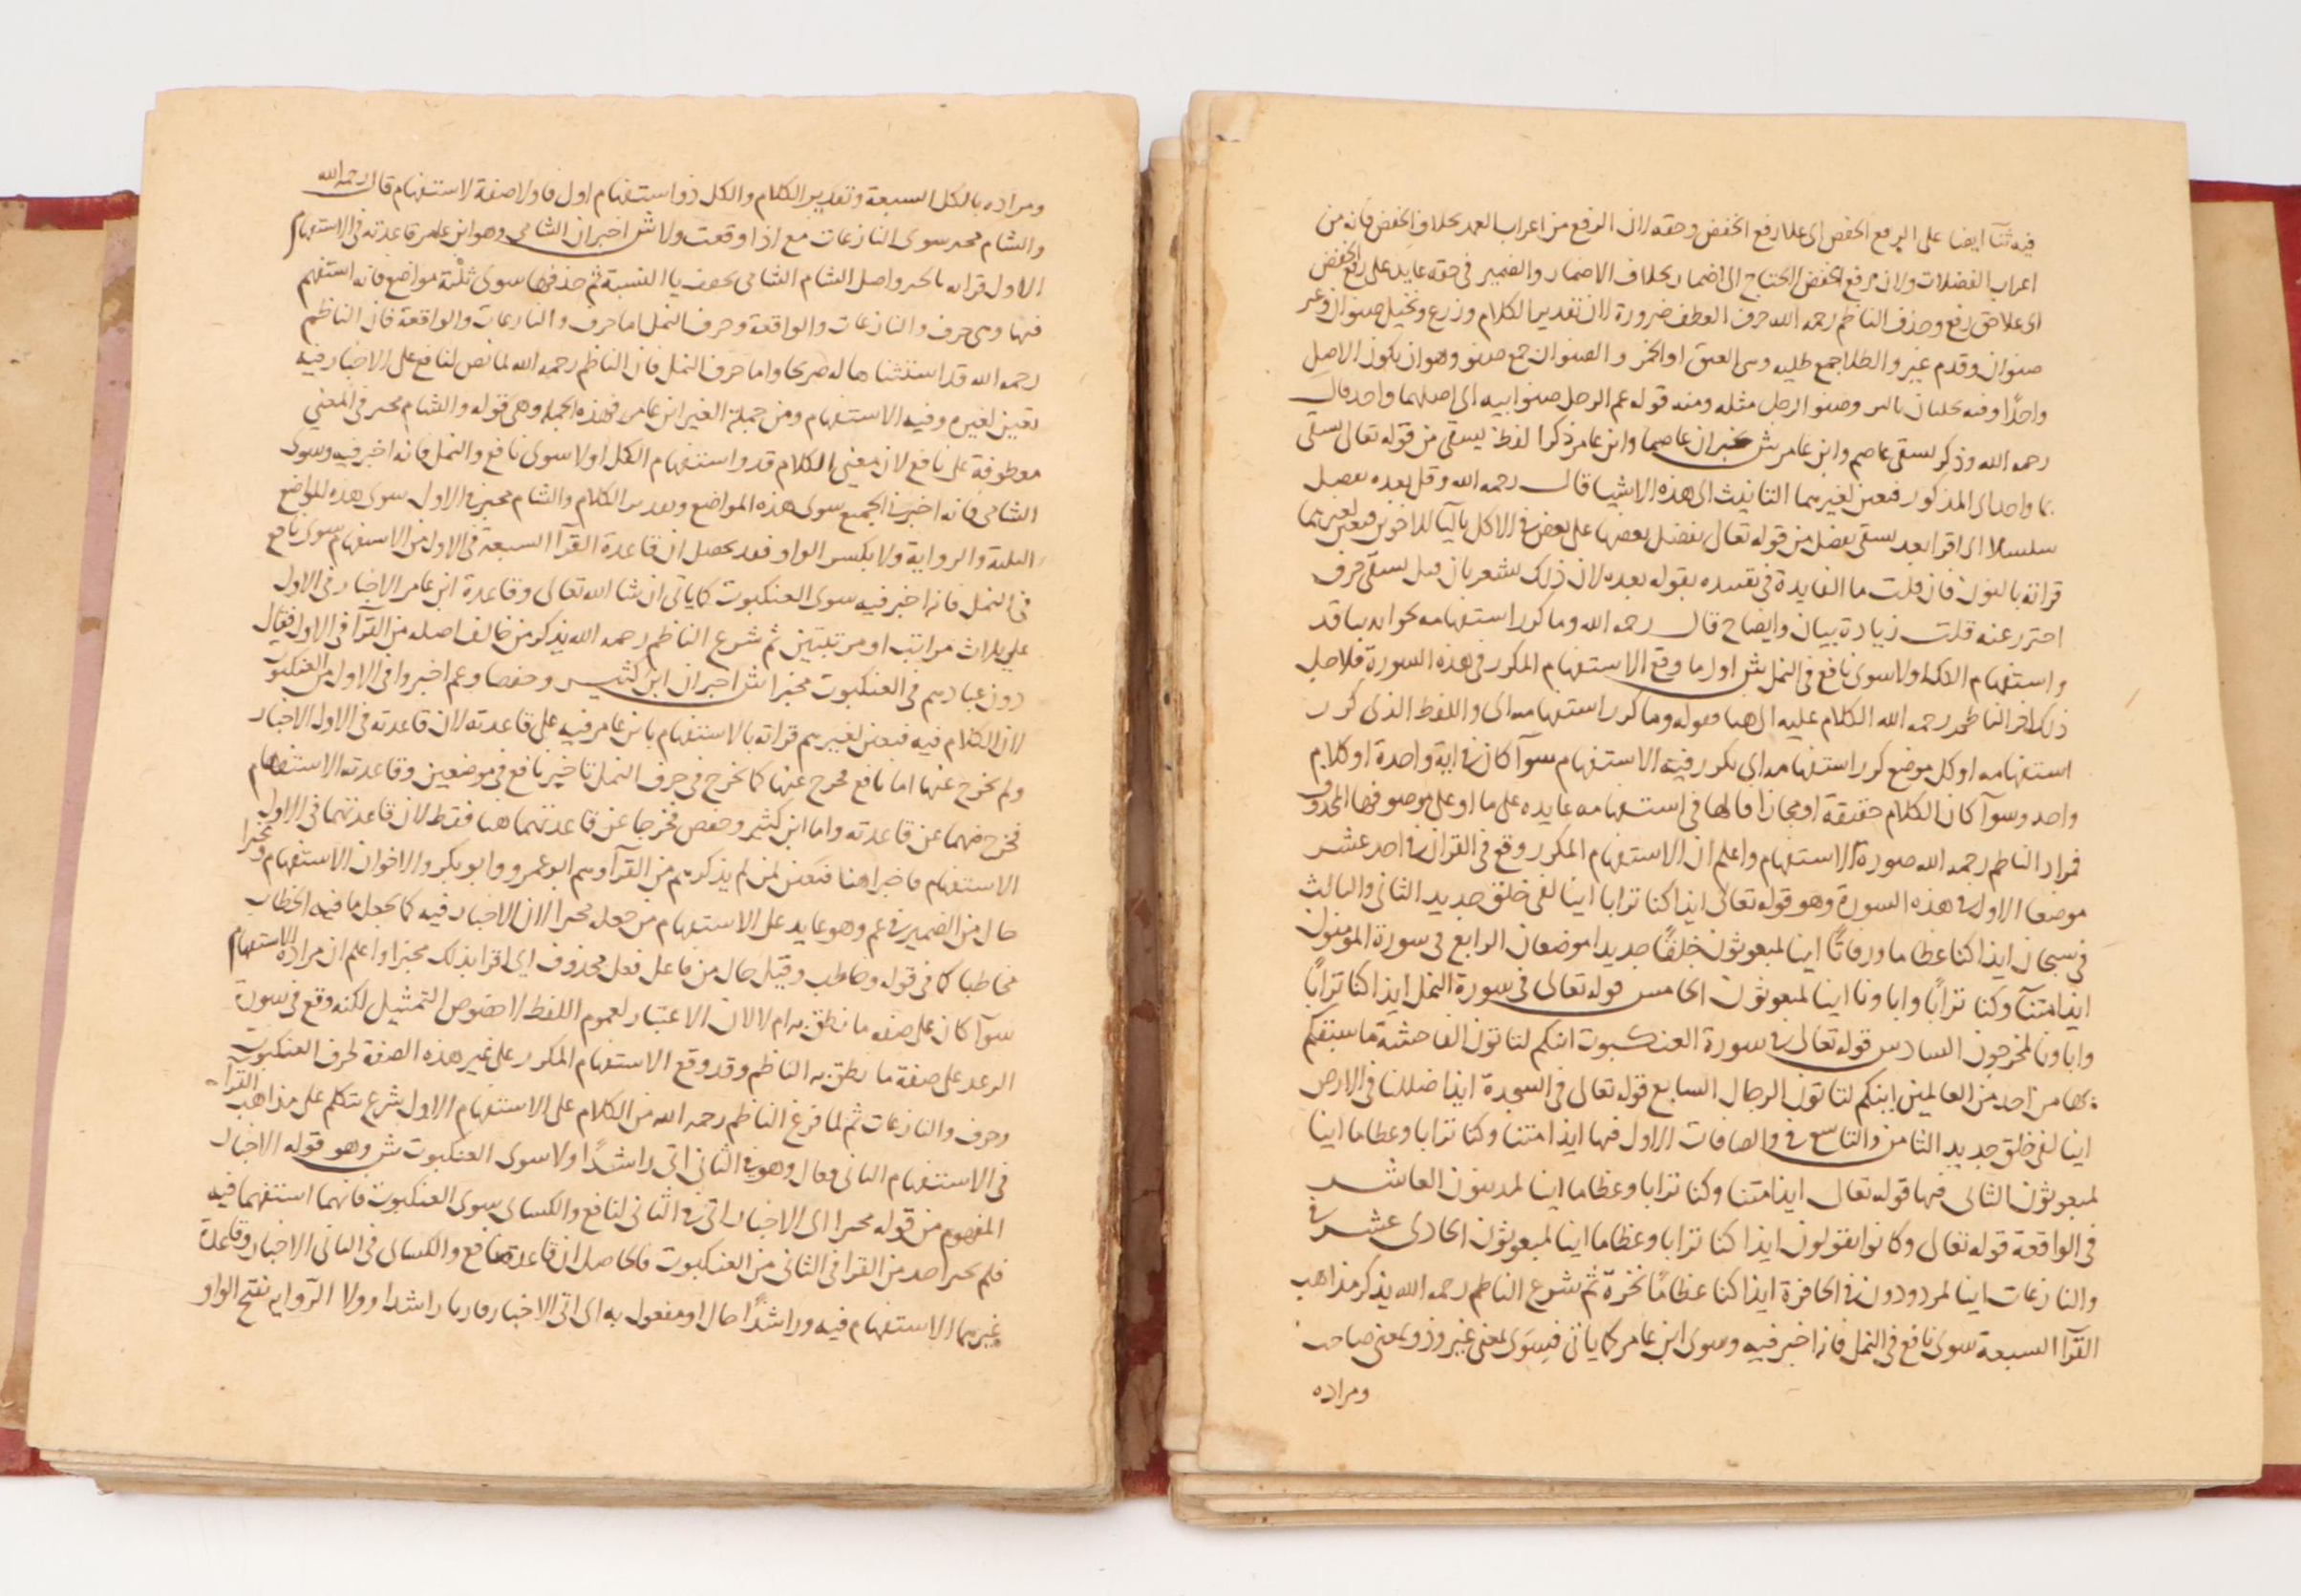 فيه ثنا ايضا على الرفع الخفض اى علا رفع الخفض وحقه لان الرفع من اعراب العمد بخلاف الخفض فانه من
اعراب الفضلات ولان رفع الخفض لا يحتاج الى اضمار بخلاف الاضمار والضمير فى حقه عايد على رفع الخفض
اى علا حق رفع وحذف الناظم رحمه الله حرف العطف ضرورة لان تقدير الكلام وزرع ونخيل صنوان وغير
صنوان وقدم غير والطلا جمع طليه وهى العنق او الخمر والصنوان جمع صنو وهو ان يكون الاصل
واحدًا وفيه نخلتان وصنو الرجل مثله ومنه قوله عم الرجل صنو ابيه اى اصلهما واحد قال
رحمه الله وذكر يسقى عاصم وابن عامر ش اخبر ان عاصما وابن عامر ذكرا لفظ يسقى من قوله تعالى يسقى
بما واحد اى المذكور فتعين لغيرهما التانيث اى هذه الاشيا قال رحمه الله وقل بعده يفضل
سلسلا اى اقرا بعد يسقى يفضل من قوله تعالى نفضل بعضها على بعض فى الاكل باليا للاخوين فتعين لغيرهما
قراته بالنون فان قلت ما الفايدة فى تقييده بقوله بعده لان ذلك يشعر بان قبل يسقى حرف
احترز عنه قلت زيادة بيان وايضاح قال رحمه الله وما كرر استفهامه نحو ايذا
واستفهام الكل اولا سوى نافع فى النمل ش اول ما وقع الاستفهام المكرر فى هذه السورة فلاجل
ذلك اخر الناظم رحمه الله الكلام عليه الى هنا فقوله وما كرر استفهامه اى واللفظ الذى كرر
استفهامه او كل موضع كرر استفهامه اى تكرر فيه الاستفهام سوآ كان فى اية واحدة او كلام
واحد وسوآ كان الكلام حقيقة او مجازا فالها فى استفهامه عايده على ما او على موصوفها المحذوف
فمراد الناظم رحمه الله صورة الاستفهام واعلم ان الاستفهام المكرر وقع فى القران فى احد عشر
موضعا الاول فى هذه السورة وهو قوله تعالى ايذا كنا ترابا اينا لفى خلق جديد الثانى والثالث
فى سبحان ايذا كنا عظاما ورفاتًا اينا لمبعوثون خلقًا جديدا موضعان الرابع فى سورة المؤمنون
ايذا متنا وكنا ترابًا وعظاما اينا لمبعوثون الخامس قوله تعالى فى سورة النمل ايذا كنا ترابًا
واباونا لمخرجون السادس قوله تعالى فى سورة العنكبوت انكم لتاتون الفاحشة ما سبقكم
بها من احد من العالمين اينكم لتاتون الرجال السابع قوله تعالى فى السجدة ايذا ضللنا فى الارض
اينا لفى خلق جديد الثامن والتاسع فى والصافات الاول فيها ايذا متنا وكنا ترابا وعظاما اينا
لمبعوثون الثانى فيها قوله تعالى ايذا متنا وكنا ترابا وعظاما اينا لمدينون العاشر
فى الواقعة قوله تعالى وكانوا يقولون ايذا كنا ترابا وعظاما اينا لمبعوثون الحادى عشر فى
والنازعات اينا لمردودون فى الحافرة ايذا كنا عظامًا نخرة ثم شرع الناظم رحمه الله يذكر مذاهب
القرآ السبعة سوى نافع فى النمل فانه اخبر فيه وسوى ابن عامر كما ياتى فسوى بمعنى غير وذو بمعنى صاحب
ومراده
ومراده بالكل السبعة وتقدير الكلام والكل ذو استفهام اول فاولا صفة لاستفهام قال رحمه الله
والشام مخبر سوى النازعات مع اذا وقعت ولا ش اخبر ان الشامى وهو ابن عامر قاعدته فى الاستفهام
الاول قراته بالخبر واصل الشام الشامى بخفف يا النسبة ثم حذفها سوى ثلثة مواضع فانه استفهم
فيها وهى حرف والنازعات والواقعة وحرف النمل اما حرف والنازعات والواقعة فان الناظم
رحمه الله قد استثناها له صريحا واما حرف النمل فان الناظم رحمه الله لما نص لنافع على الاخبار فيه
تعين لغيره فيه الاستفهام ومن جملة الغير ابن عامر فهذه الجملة وهى قوله والشام مخبر فى المعنى
معطوفة على نافع لان معنى الكلام قد واستفهام الكل اولا سوى نافع والنمل فانه اخبر فيه وسوى
الشامى فانه اخبر فى الجميع سوى هذه المواضع وتقدير الكلام والشام مخبر فى الاول سوى هذه المواضع
الثلثة والرواية ولا بكسر الواو فقد تحصل ان قاعدة القرآ السبعة فى الاول من الاستفهام سوى نافع
فى النمل فانه اخبر فيه سوى العنكبوت كما ياتى ان شا الله تعالى وقاعدة ابن عامر الاخبار فى الاول
على ثلاث مراتب او مرتبتين ثم شرع الناظم رحمه الله يذكر من خالف اصله من القرآ فى الاول فقال
دون عناد عم فى العنكبوت مخبرا ش اخبر ان ابن كثير وحفصا وعم اخبروا فى الاول من العنكبوت
لان الكلام فيه فتعين لغيرهم قراته بالاستفهام فابن عامر فيه على قاعدته لان قاعدته فى الاول الاخبار
ولم يخرج عنها اما نافع فخرج عنها كما يخرج فى حرف النمل فاخبر نافع فى موضعين وقاعدته الاستفهام
فخرج فيهما عن قاعدته واما ابن كثير وحفص فخرجا عن قاعدتهما هنا فقط لان قاعدتهما فى الاول
الاستفهام فاخبرا هنا فتعين لمن لم يذكرهم من القرآ وهم ابو عمرو وابو بكر والاخوان الاستفهام ومخبرا
حال من الضمير فى عم وهو عايد على الاستفهام من جعله مخبرا لان الاخبار فيه كما يجعل ما فيه الخطاب
مخاطبا كما فى قوله وخاطب وقيل حال من فاعل فعل محذوف اى اقرا بذلك مخبرا واعلم ان مراده الاستفهام
سوآ كان على صفه ما نطق به ام لا لان الاعتبار لعموم اللفظ لا خصوص التمثيل لكنه وقع فى سورة
الرعد على صفة ما نطق به الناظم وقد وقع الاستفهام المكرر على غير هذه الصفة كحرف العنكبوت
وحرف والنازعات ثم لما فرغ الناظم رحمه الله من الكلام على الاستفهام الاول شرع يتكلم على مذاهب القرآ
فى الاستفهام الثانى فقال وهو فى الثانى اتى راشدًا ولا سوى العنكبوت ش وهو قوله الاخبار
المفهوم من قوله مخبرا اى الاخبار اتى فى الثانى لنافع والكسائى سوى العنكبوت فانهما استفهما فيه
فلم يخبر احد من القرا فى الثانى من العنكبوت فالحاصل ان قاعدة نافع والكسائى فى الثانى الاخبار وقاعدة
غيرهما الاستفهام فيه وراشدًا حال او مفعول به اى اتى الاخبار قاريا راشدا وولا الرواية بفتح الواو